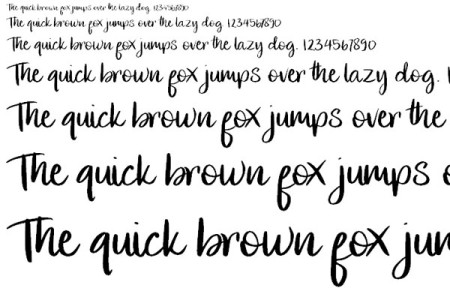 The quick brown fox jumps over the lazy dog. 1234567890
The quick brown fox jumps over the lazy dog. 1234567890
The quick brown fox jumps over the lazy dog. 1234567890
The quick brown fox jumps over the lazy dog. 1
The quick brown fox jumps over the
The quick brown fox jumps
The quick brown fox jum